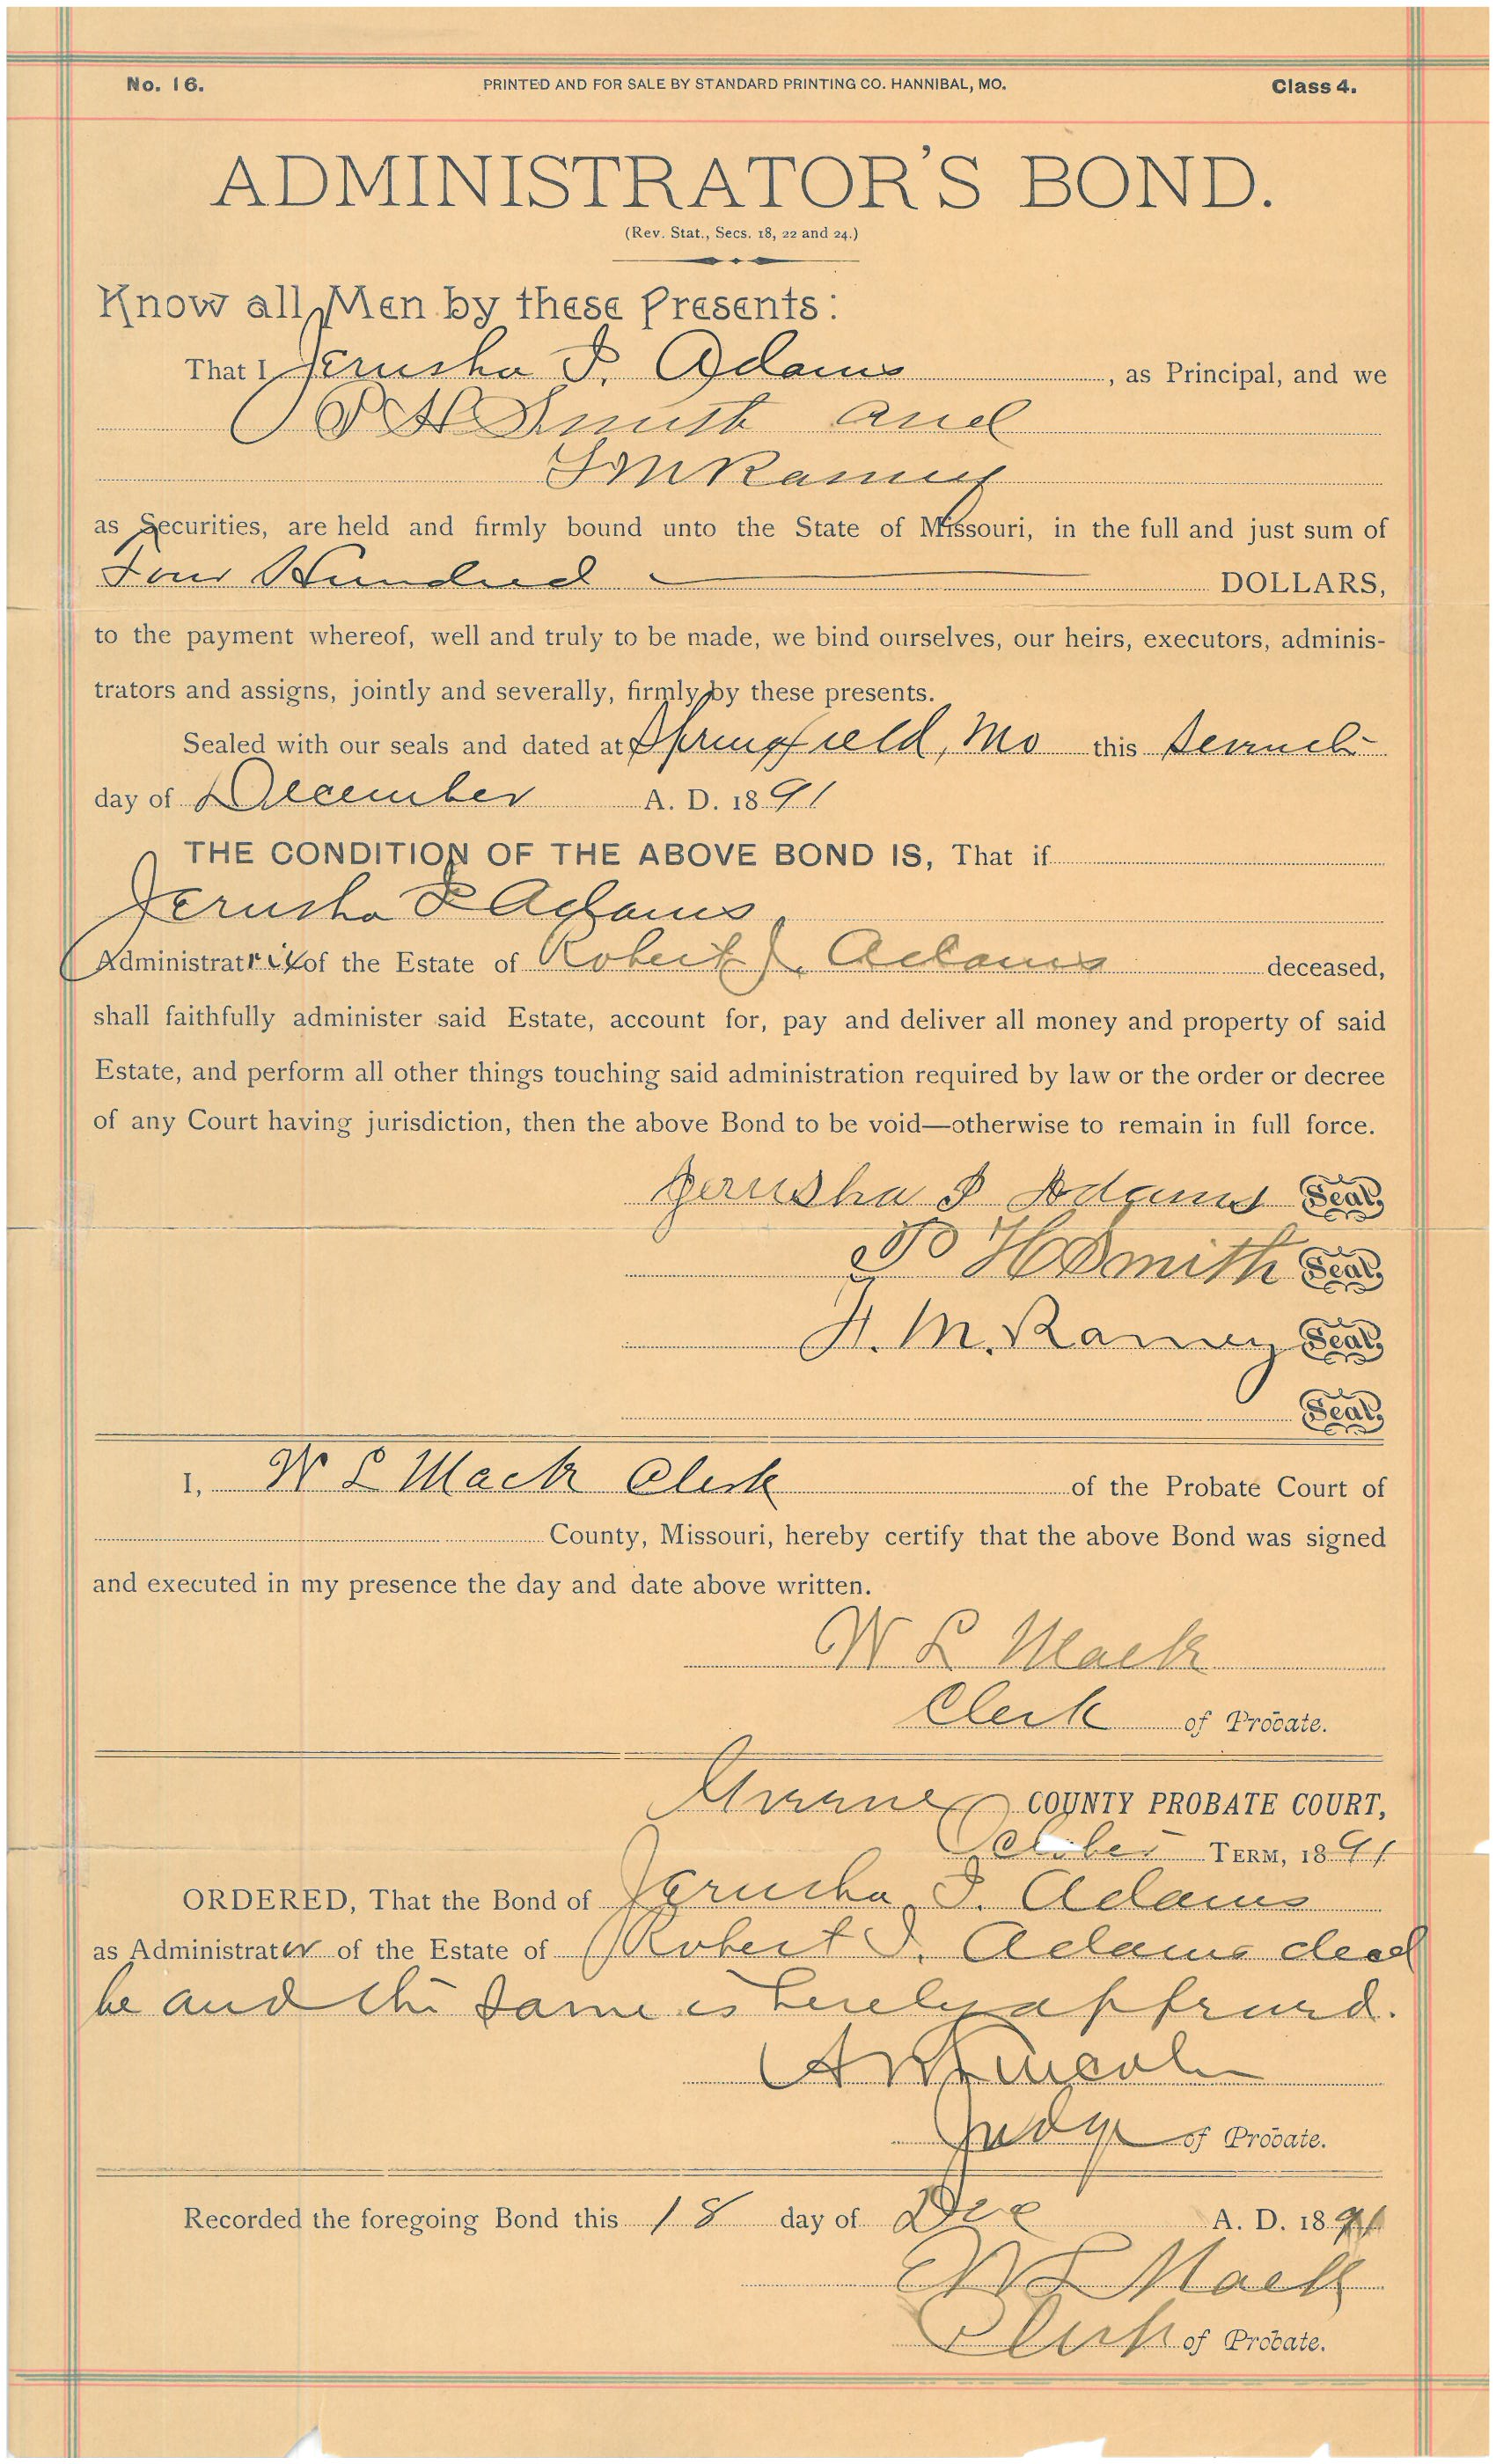 No. 16. PRINTED AND FOR SALE BY STANDARD PRINTING CO. HANNIBAL, MO. Class 4.
ADMINISTRATOR'S BOND.
(Rev. Stat., Secs. 18, 22 and 24.)
Know all Men by these Presents:
That I Jerusha I. Adams, as Principal, and we
P H Smith and
F M Ramey
as Securities, are held and firmly bound unto the State of Missouri, in the full and just sum of
Four Hundred DOLLARS,
to the payment whereof, well and truly to be made, we bind ourselves, our heirs, executors, adminis-
trators and assigns, jointly and severally, firmly by these presents.
Sealed with our seals and dated at Springfield, Mo this
day of December A. D. 1891
THE CONDITION OF THE ABOVE BOND IS, That if
Jerusha I Adams
Administratrix of the Estate of Robert J. Adams deceased,
shall faithfully administer said Estate, account for, pay and deliver all money and property of said
Estate, and perform all other things touching said administration required by law or the order or decree
of any Court having jurisdiction, then the above Bond to be void—otherwise to remain in full force.
Jerusha I Adams Seal
P H Smith Seal
F. M. Ramey Seal
Seal
I, W L Mack Clerk of the Probate Court of
County, Missouri, hereby certify that the above Bond was signed
and executed in my presence the day and date above written.
W L Mack
Clerk of Probate.
Greene COUNTY PROBATE COURT,
October TERM, 1891
ORDERED, That the Bond of Jerusha I. Adams
as Administrater of the Estate of Robert J. Adams decd
be and the same is hereby approved.
Lincoln
Judge of Probate.
Recorded the foregoing Bond this 18 day of Dec A. D. 1891
W L Mack
Clerk of Probate.